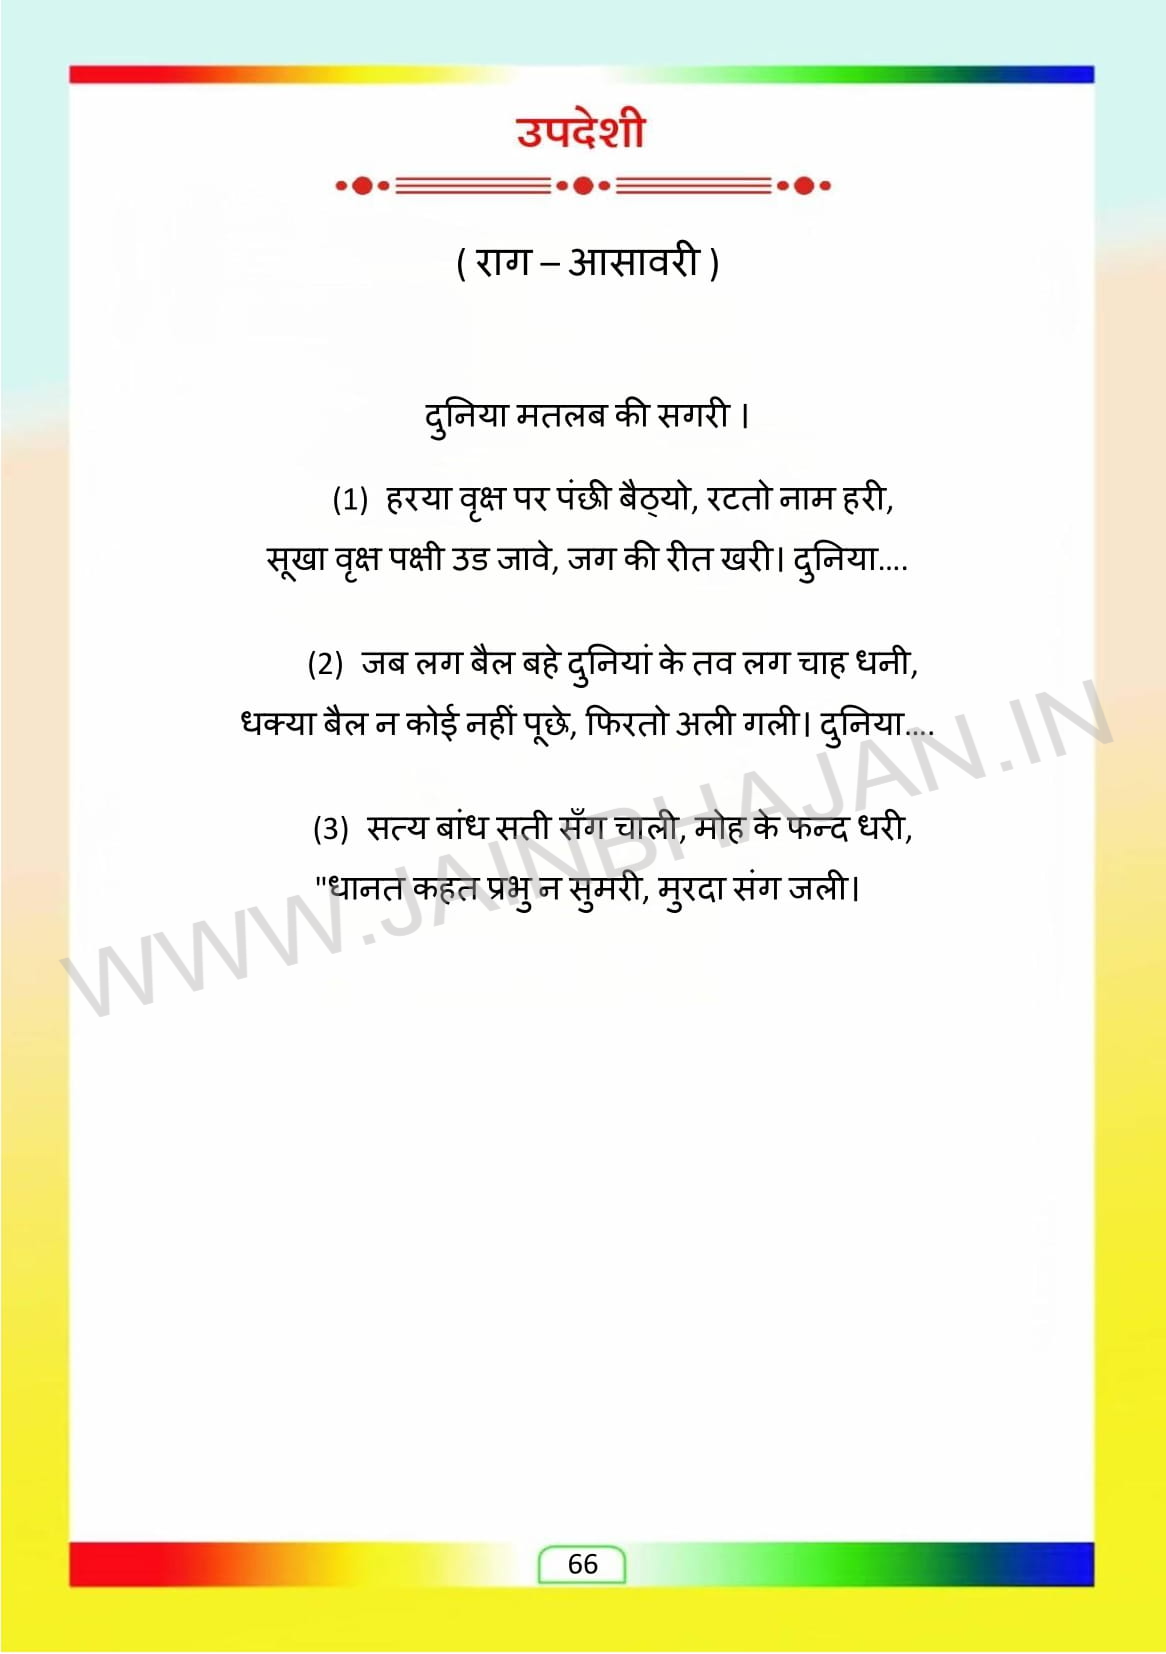 उपदेशी
( राग – आसावरी )
दुनिया मतलब की सगरी ।
(1) हरया वृक्ष पर पंछी बैठ्यो, रटतो नाम हरी,
सूखा वृक्ष पक्षी उड जावे, जग की रीत खरी। दुनिया....
(2) जब लग बैल बहे दुनियां के तव लग चाह धनी,
धक्या बैल न कोई नहीं पूछे, फिरतो अली गली। दुनिया....
(3) सत्य बांध सती सँग चाली, मोह के फन्द धरी,
"धानत कहत प्रभु न सुमरी, मुरदा संग जली।
WWW.JAINBHAJAN.IN
66